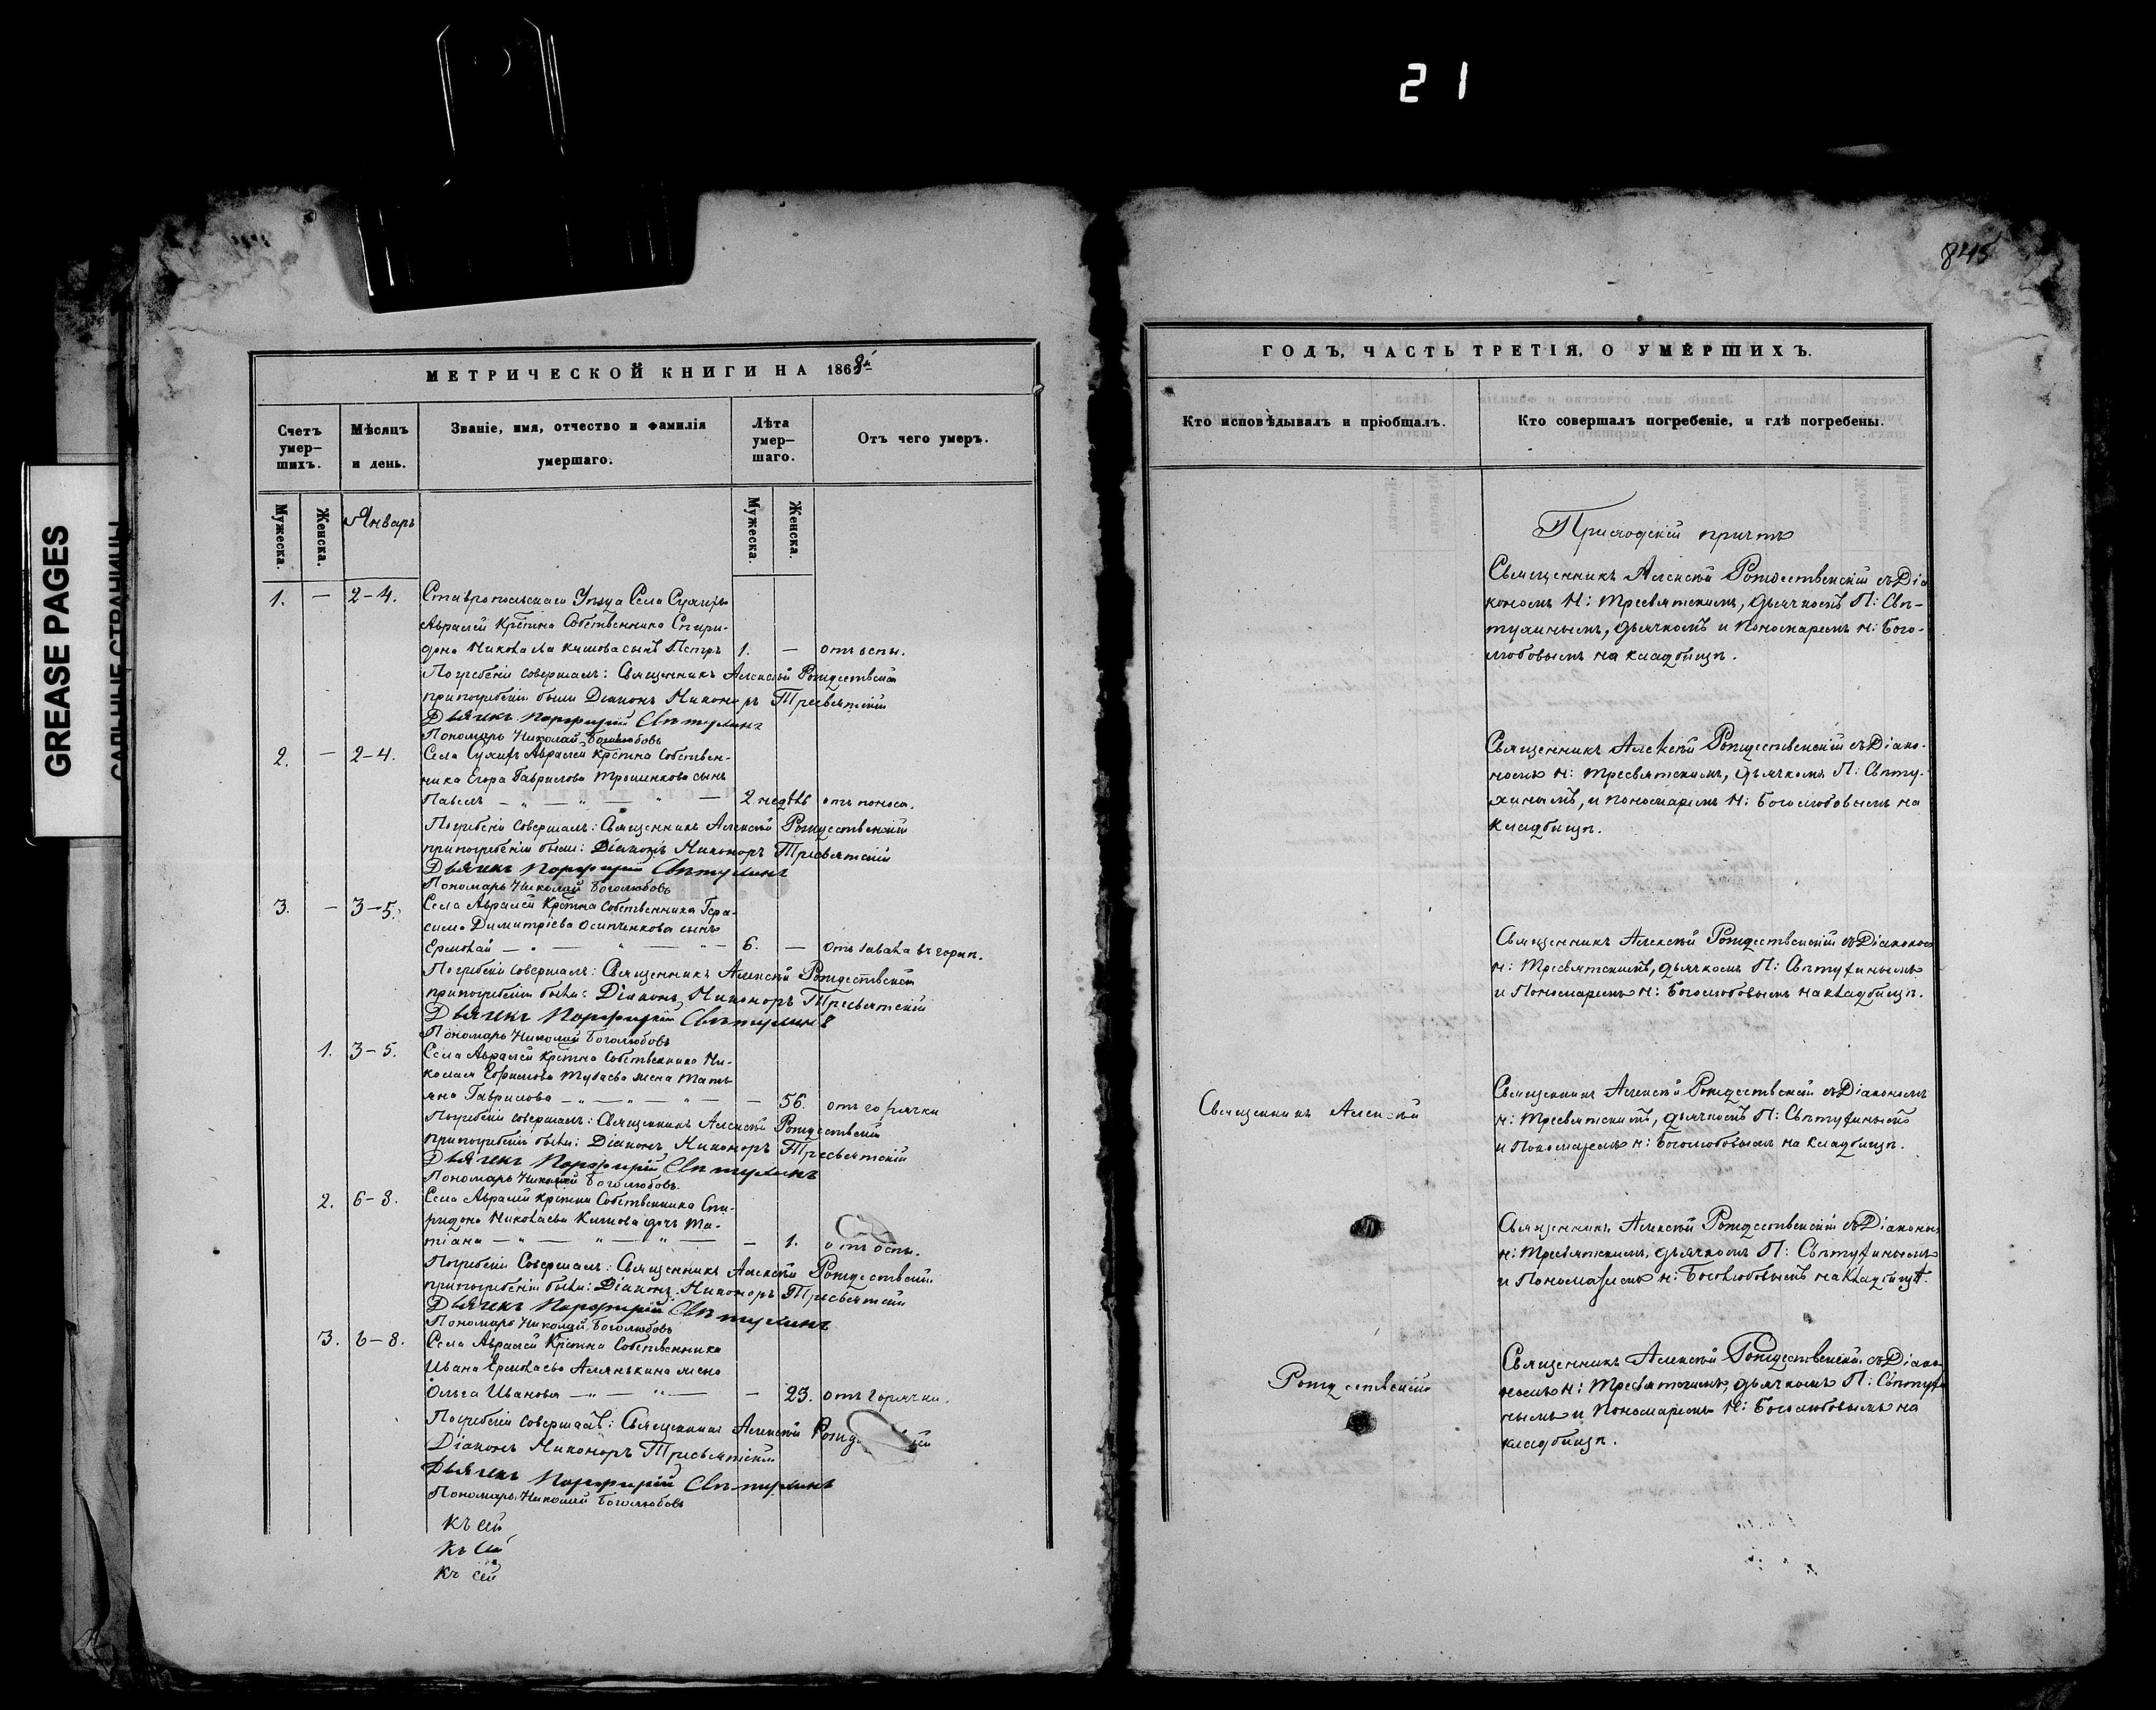 21
845
GREASE PAGES
САЛЬНЫЕ СТРАНИЦЫ
МЕТРИЧЕСКОЙ КНИГИ НА 1868й
Счетъ умер-шихъ.
Мѣсяцъ и день.
Званіе, имя, отчество и фамилія умершаго.
Лѣта умер-шаго.
Отъ чего умеръ.
Мужеска.
Женска.
Январь
Мужеска.
Женска.
1. — 2-4. Ставропольскаго Уѣзда Села
Авралей Крѣстина Собственника Спири-
дона Николаева сынъ Петръ 1. — отъ оспы.
Погребеніе совершалъ: Священникъ Алексѣй Рождественскій
при погребеніи были Діаконъ Никаноръ Тресвятскій
Дьячекъ Порфирій Свѣтухинъ
Пономарь Николай Боголюбовъ
2. — 2-4. Села Авралей Крѣстина Собствен-
ника Егора Гаврилова Трошенкова сынъ
Павелъ — „ — „ — „ — 2 недѣль отъ поноса.
Погребеніе Совершалъ: Священникъ Алексѣй Рождественскій
при погребеніи были: Діаконъ Никаноръ Тресвятскій
Дьячекъ Порфирій Свѣтухинъ
Пономарь Николай Боголюбовъ
3. — 3-5. Села Авралей Крѣстина Собственника Гера-
сима Димитріева Осипенкова сынъ
Ермолай — „ — „ — „ — 6. — Отъ завала въ горлѣ.
Погребеніе Совершалъ: Священникъ Алексѣй Рождественскій
при погребеніи были: Діаконъ Никаноръ Тресвятскій
Дьячекъ Порфирій Свѣтухинъ
Пономарь Николай Боголюбовъ
1. 3-5. Села Авралей Крѣстина Собственника Ни-
колая Ефимова жена Тать
яна Гаврилова — „ — „ — „ — — 56. отъ горячки
Погребеніе Совершалъ: Священникъ Алексѣй Рождественскій
при погребеніи были: Діаконъ Никаноръ Тресвятскій
Дьячекъ Порфирій Свѣтухинъ
Пономарь Николай Боголюбовъ.
2. 6-8. Села Авралей Крѣстина Собственника Спи-
ридона Николаева дочь Та-
тіана — „ — „ — „ — — 1. отъ оспы.
Погребеніе Совершалъ: Священникъ Алексѣй Рождественскій
при погребеніи были: Діаконъ Никаноръ Тресвятскій
Дьячекъ Порфирій Свѣтухинъ
Пономарь Николай Боголюбовъ
3. 6-8. Села Авралей Крѣстина Собственника
Ивана Ермолаева Алянькина жена
Ольга Иванова — „ — „ — — 23. отъ горячки.
Погребеніе Совершалъ: Священникъ Алексѣй
Діаконъ Никаноръ Тресвятскій
Дьячекъ Порфирій Свѣтухинъ
Пономарь Николай Боголюбовъ
Къ сей
Къ сей
Къ сей
ГОДЪ, ЧАСТЬ ТРЕТІЯ, О УМЕРШИХЪ.
Кто исповѣдывалъ и пріобщалъ.
Кто совершалъ погребеніе, и гдѣ погребены.
Приходскій причтъ
Священникъ Алексѣй Рождественскій съ Діа
кономъ Н: Тресвятскимъ, дьячкомъ П: Свѣ-
тухинымъ, дьячкомъ и Пономаремъ Н: Бого-
любовымъ на кладбищѣ.
Священникъ Алексѣй Рождественскій съ Діако-
номъ Н: Тресвятскимъ, дьячкомъ П: Свѣту-
хинымъ, и пономаремъ Н: Боголюбовымъ на
кладбищѣ.
Священникъ Алексѣй Рождественскій съ Діакономъ
Н: Тресвятскимъ, дьячкомъ П: Свѣтухинымъ
и Пономаремъ Н: Боголюбовымъ на кладбищѣ.
Священникъ Алексѣй
Священникъ Алексѣй Рождественскій съ Діакономъ
Н: Тресвятскимъ, дьячкомъ П: Свѣтухинымъ
и Пономаремъ Н: Боголюбовымъ на кладбищѣ.
Священникъ Алексѣй Рождественскій съ Діакономъ
Н: Тресвятскимъ, дьячкомъ П: Свѣтухинымъ
и Пономаремъ Н: Боголюбовымъ на кладбищѣ.
Рождественскій
Священникъ Алексѣй Рождественскій съ Діако-
номъ Н: Тресвятскимъ, дьячкомъ П: Свѣтухи
нымъ и Пономаремъ Н: Боголюбовымъ на
кладбищѣ.